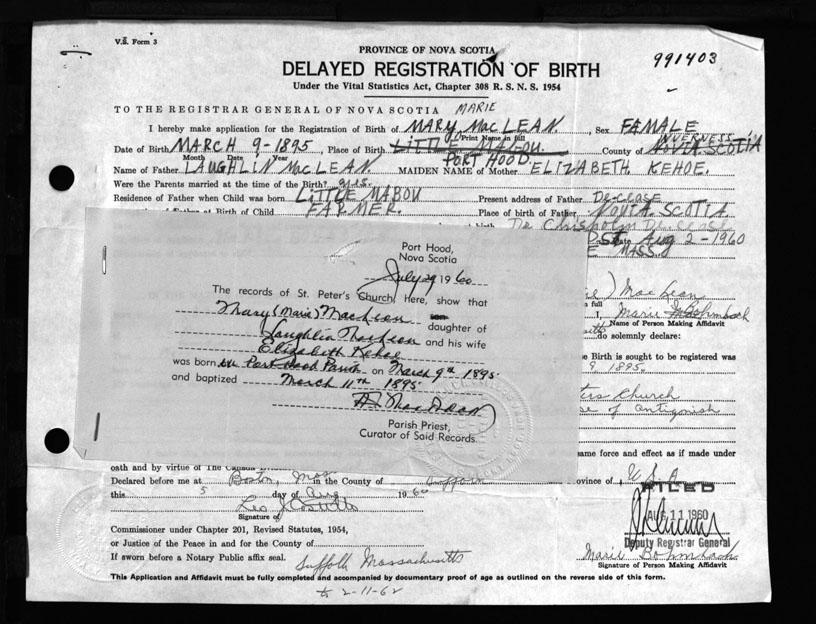 V.S. Form 3
991403
PROVINCE OF NOVA SCOTIA
DELAYED REGISTRATION OF BIRTH
Under the Vital Statistics Act, Chapter 308 R. S. N. S. 1954
TO THE REGISTRAR GENERAL OF NOVA SCOTIA MARIE
I hereby make application for the Registration of Birth of MARY MacLEAN. , Sex FEMALE
Print Name in full
INVERNESS
Date of Birth MARCH 9-1895 , Place of Birth LITTLE MABOU. County of NOVA SCOTIA
Month Date Year
PORT HOOD.
Name of Father LAUGHLIN MacLEAN. MAIDEN NAME of Mother ELIZABETH. KEHOE.
Were the Parents married at the time of the Birth? yes.
Residence of Father when Child was born LITTLE MABOU Present address of Father Decease
at Birth of Child FARMER. Place of birth of Father NOVIA. SCOTIA
De Chisholm Decease
Date Aug 2-1960
MASS.
Port Hood,
Nova Scotia
July 29 1960
The records of St. Peter's Church, Here, show that
Mary (Marie) MacLean daughter of
Laughlin MacLean and his wife
Elizabeth Kehoe
was born in Port Hood Parish on March 9th 1895
and baptized March 11th 1895
Parish Priest,
Curator of Said Records.
) MacLean
a full
I, Marie Bohmbach
Name of Person Making Affidavit
do solemnly declare:
e Birth is sought to be registered was
9 1895.
ters Church
se of Antigonish
same force and effect as if made under
oath and by virtue of The Canada
Declared before me at Boston, Mass in the County of Suffolk ovince of U.S.A
this 5 day of Aug 1960
FILED
AUG 11 1960
Signature of
Deputy Registrar General
Commissioner under Chapter 201, Revised Statutes, 1954,
or Justice of the Peace in and for the County of
If sworn before a Notary Public affix seal. Suffolk Massachusetts
Marie Bohmbach
Signature of Person Making Affidavit
This Application and Affidavit must be fully completed and accompanied by documentary proof of age as outlined on the reverse side of this form.
2-11-62